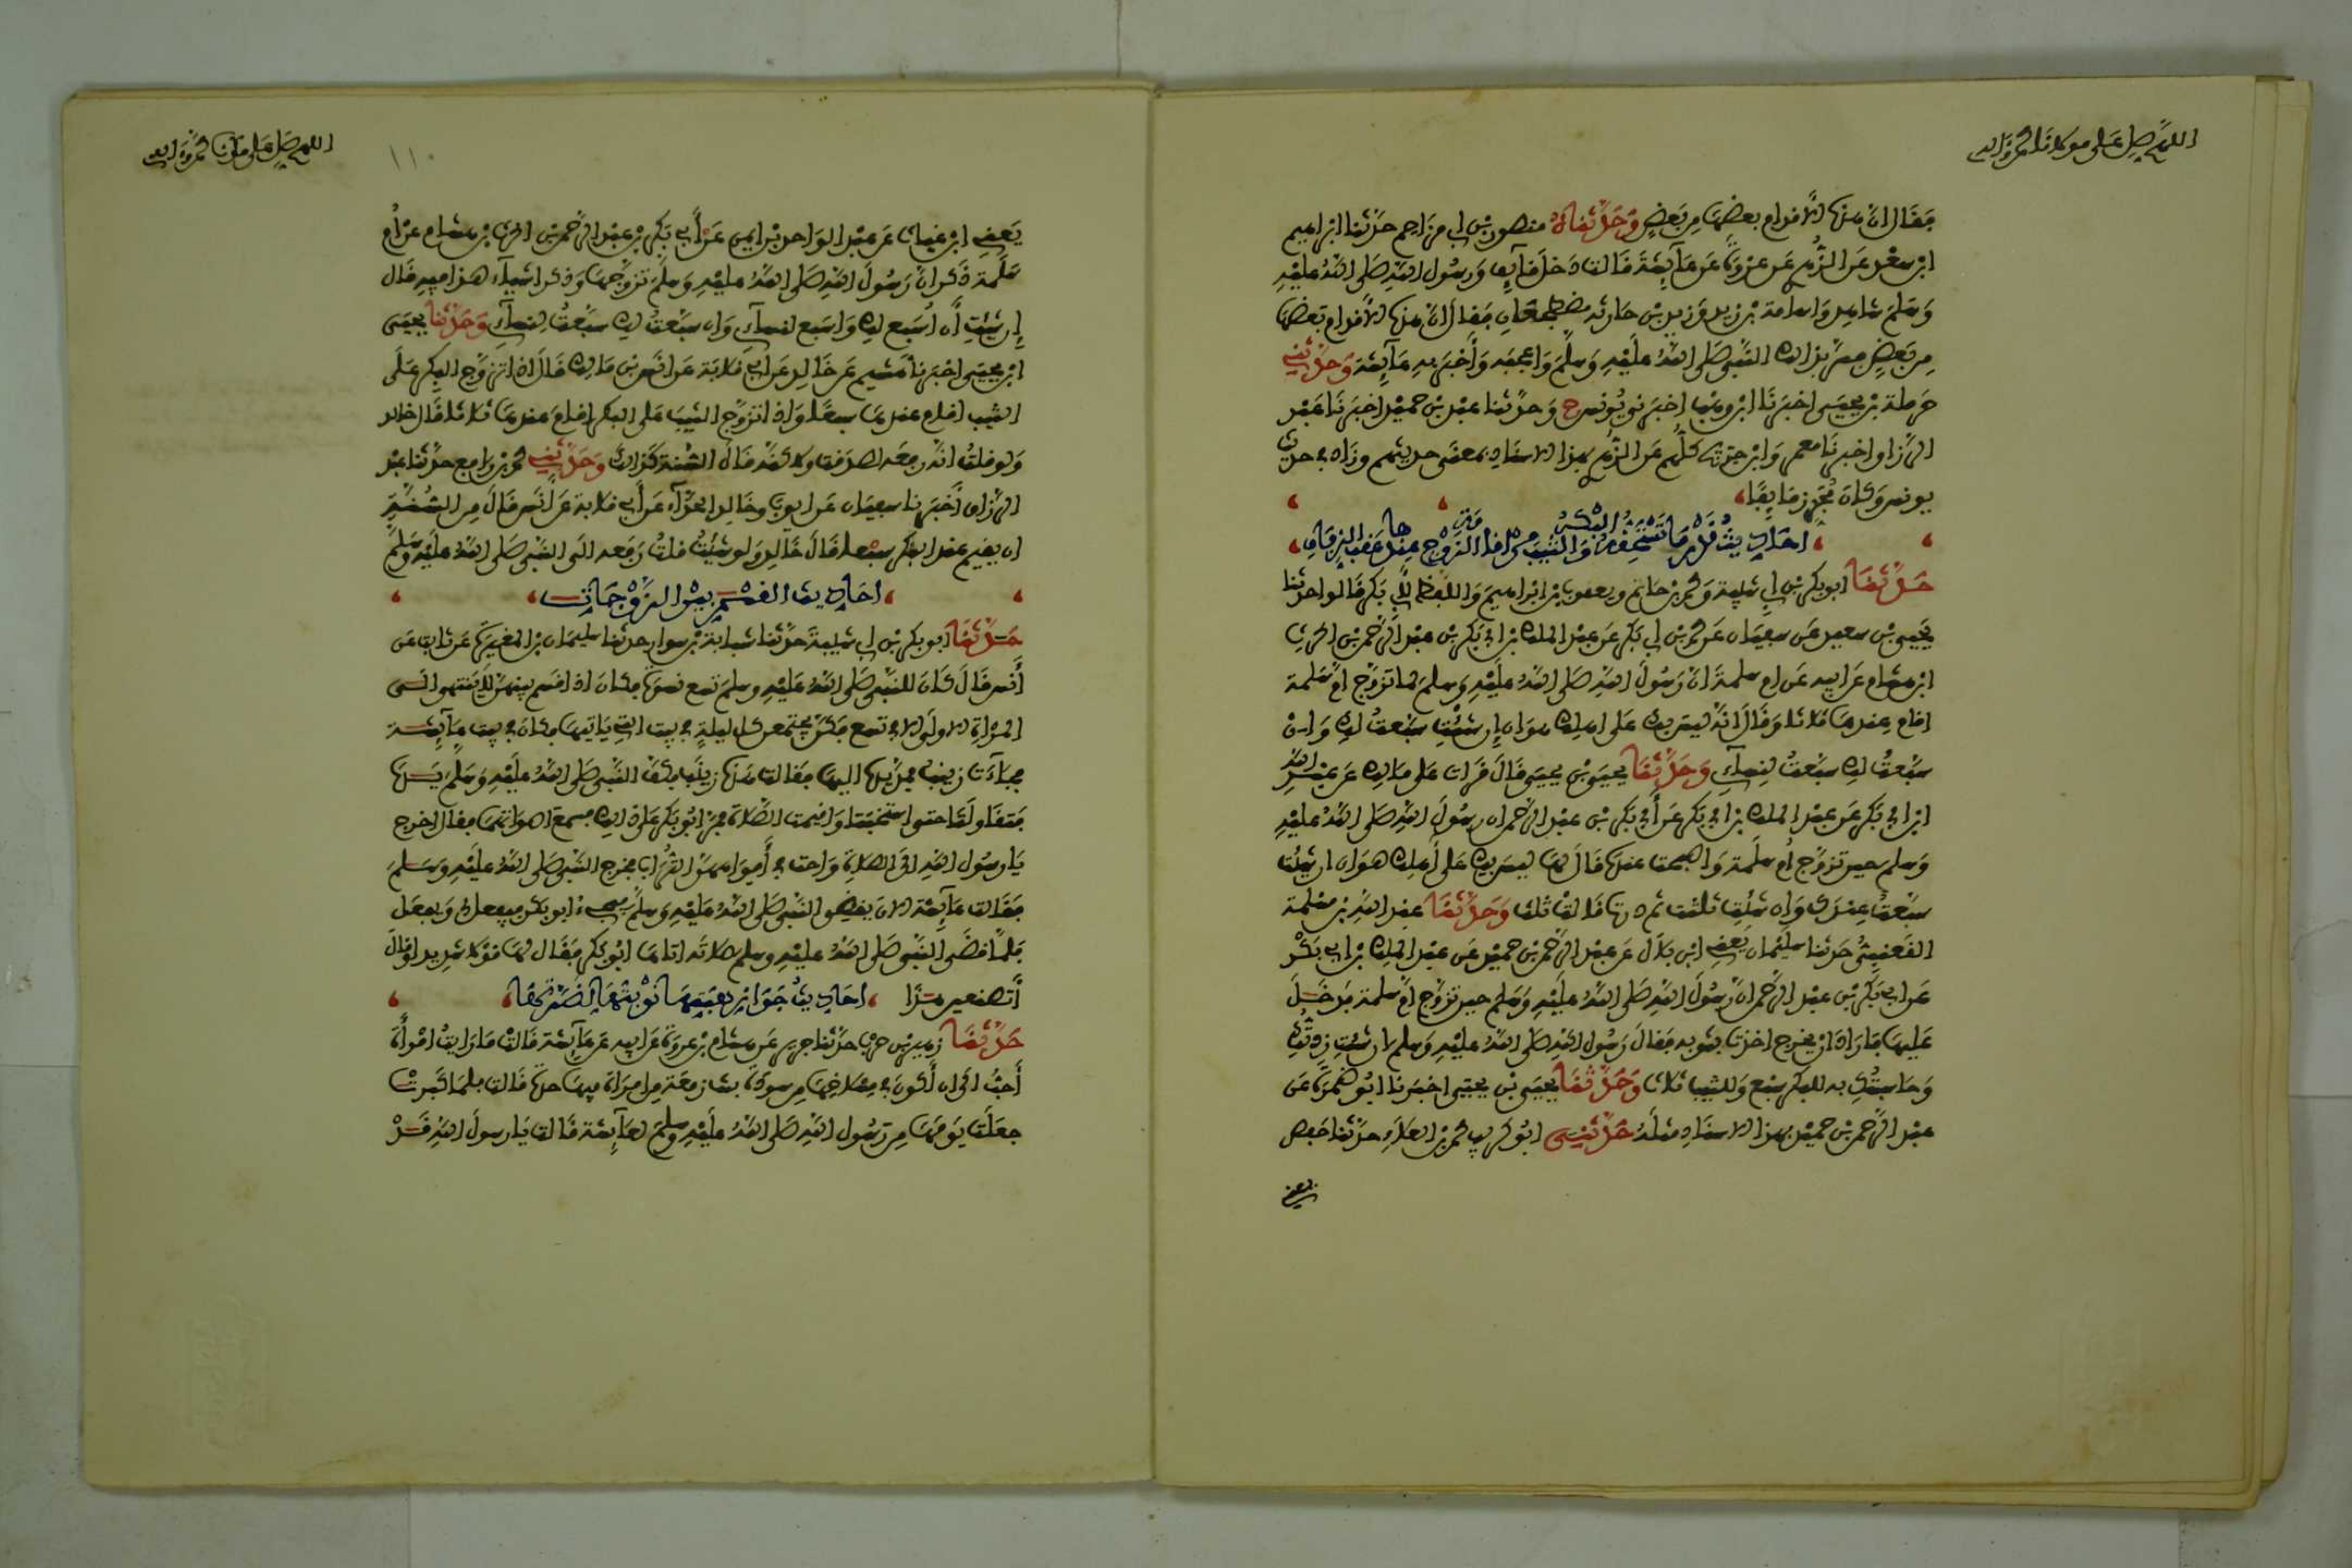 اللهم صل على مولانا محمد وآله
فقال إن هذه الأقدام بعضها من بعض وحدثناه منصور بن أبي مزاحم حدثنا إبراهيم
ابن سعد عن الزهري عن عروة عن عائشة قالت دخل قائف ورسول الله صلى الله عليه
وسلم شاهد وأسامة بن زيد وزيد بن حارثة مضطجعان فقال إن هذه الأقدام بعضها
من بعض فسر بذلك النبي صلى الله عليه وسلم وأعجبه وأخبر به عائشة وحدثني
حرملة بن يحيى أخبرنا ابن وهب أخبرني يونس ح وحدثنا عبد بن حميد أخبرنا عبد
الرزاق أخبرنا معمر وابن جريج كلهم عن الزهري بهذا الإسناد بمعنى حديثهم وزاد في حديث
يونس وكان مجزز قائفا
أحاديث قدر ما تستحقه البكر والثيب من إقامة الزوج عندها عقب الزفاف
حدثنا أبو بكر بن أبي شيبة ومحمد بن حاتم ويعقوب بن إبراهيم واللفظ لأبي بكر قالوا حدثنا
يحيى بن سعيد عن سفيان عن محمد بن أبي بكر عن عبد الملك بن أبي بكر بن عبد الرحمن بن الحرث
ابن هشام عن أبيه عن أم سلمة أن رسول الله صلى الله عليه وسلم لما تزوج أم سلمة
أقام عندها ثلاثا وقال إنه ليس بك على أهلك هوان إن شئت سبعت لك وإن
سبعت لك سبعت لنسائي وحدثنا يحيى بن يحيى قال قرأت على مالك عن عبد الله
ابن أبي بكر عن عبد الملك بن أبي بكر عن أبي بكر بن عبد الرحمن أن رسول الله صلى الله عليه
وسلم حين تزوج أم سلمة وأصبحت عنده قال لها ليس بك على أهلك هوان إن شئت
سبعت عندك وإن شئت ثلثت ثم درت قالت ثلث وحدثنا عبد الله بن مسلمة
القعنبي حدثنا سليمان يعني ابن بلال عن عبد الرحمن بن حميد عن عبد الملك بن أبي بكر
عن أبي بكر بن عبد الرحمن أن رسول الله صلى الله عليه وسلم حين تزوج أم سلمة فدخل
عليها فأراد أن يخرج أخذت بثوبه فقال رسول الله صلى الله عليه وسلم إن شئت زدتك
وحاسبتك به للبكر سبع وللثيب ثلاث وحدثنا يحيى بن يحيى أخبرنا أبو ضمرة عن
عبد الرحمن بن حميد بهذا الإسناد مثله حدثني أبو كريب محمد بن العلاء حدثنا حفص
يعني
اللهم صل على مولانا محمد وآله
١١٠
يعني ابن غياث عن عبد الواحد بن أيمن عن أبي بكر بن عبد الرحمن بن الحرث بن هشام عن أم
سلمة ذكر أن رسول الله صلى الله عليه وسلم تزوجها وذكر أشياء هذا فيه قال
إن شئت أن أسبع لك وأسبع لنسائي وإن سبعت لك سبعت لنسائي وحدثنا يحيى
ابن يحيى أخبرنا هشيم عن خالد عن أبي قلابة عن أنس بن مالك قال إذا تزوج البكر على
الثيب أقام عندها سبعا وإذا تزوج الثيب على البكر أقام عندها ثلاثا قال خالد
ولو قلت إنه رفعه لصدقت ولكنه قال السنة كذلك وحدثني محمد بن رافع حدثنا عبد
الرزاق أخبرنا سفيان عن أيوب وخالد الحذاء عن أبي قلابة عن أنس قال من السنة
أن يقيم عند البكر سبعا قال خالد ولو شئت قلت رفعه إلى النبي صلى الله عليه وسلم
أحاديث القسم بين الزوجات
حدثنا أبو بكر بن أبي شيبة حدثنا شبابة بن سوار حدثنا سليمان بن المغيرة عن ثابت عن
أنس قال كان للنبي صلى الله عليه وسلم تسع نسوة فكان إذا قسم بينهن لا ينتهي إلى
المرأة الأولى إلا في تسع فكن يجتمعن كل ليلة في بيت التي يأتيها فكان في بيت عائشة
فجاءت زينب فمد يده إليها فقالت هذه زينب فكف النبي صلى الله عليه وسلم يده
فتقاولتا حتى استخبتا وأقيمت الصلاة فمر أبو بكر على ذلك فسمع أصواتهما فقال اخرج
يا رسول الله إلى الصلاة واحث في أفواههن التراب فخرج النبي صلى الله عليه وسلم
فقالت عائشة الآن يقضي النبي صلى الله عليه وسلم فيجيء أبو بكر فيفعل بي ويفعل
فلما قضى النبي صلى الله عليه وسلم صلاته أتاها أبو بكر فقال لها قولا شديدا وقال
أتصنعين هذا أحاديث جواز هبتها نوبتها لضرتها
حدثنا زهير بن حرب حدثنا جرير عن هشام بن عروة عن أبيه عن عائشة قالت ما رأيت امرأة
أحب إلي أن أكون في مسلاخها من سودة بنت زمعة من امرأة فيها حدة قالت فلما كبرت
جعلت يومها من رسول الله صلى الله عليه وسلم لعائشة قالت يا رسول الله قد